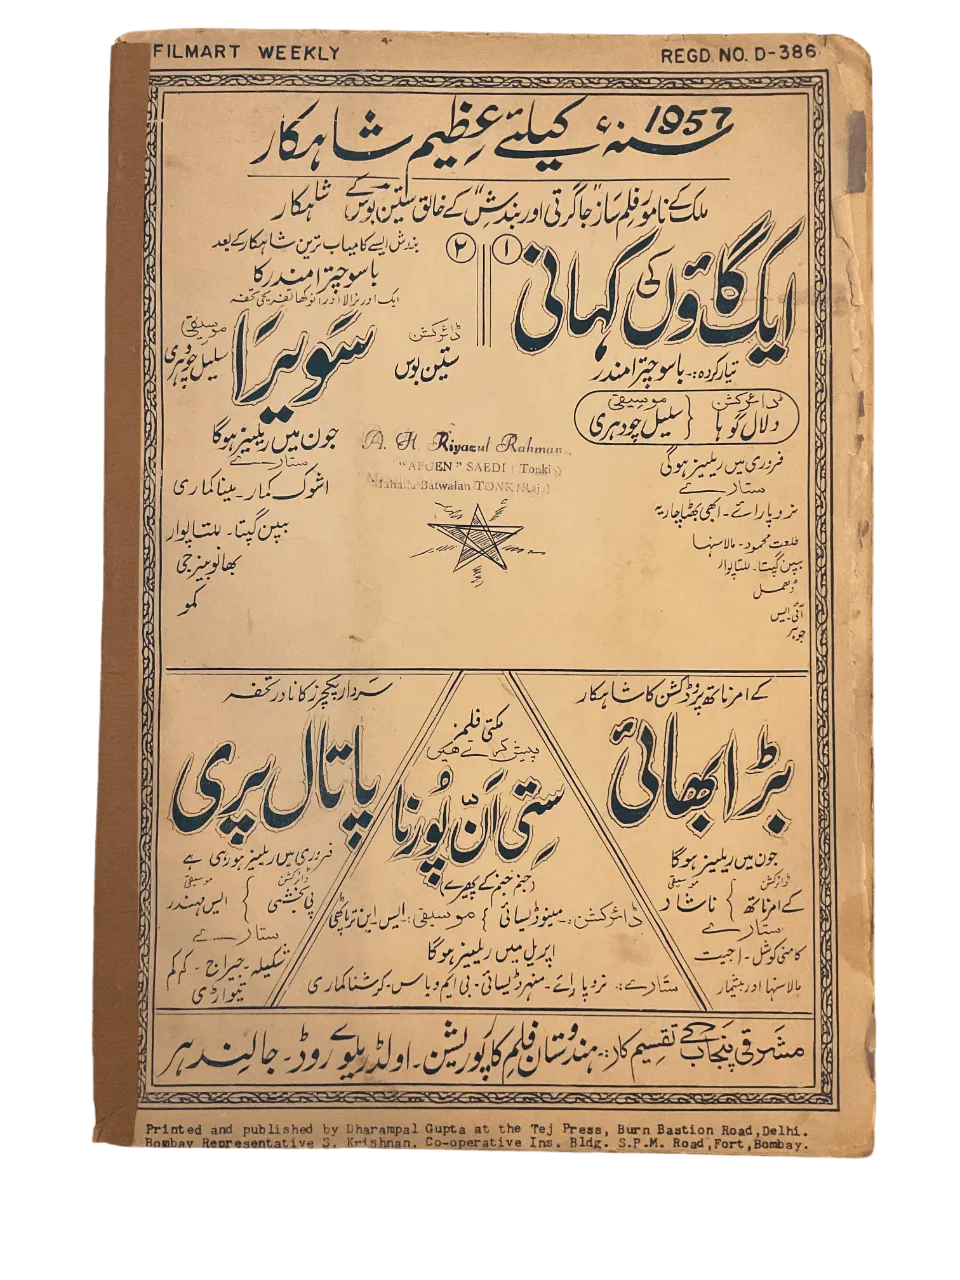 FILMART WEEKLY
REGD. NO. D-386
سنہ 1957ء کیلئے عظیم شاہکار
ملک کے نامور فلمساز "جاگرتی اور بندش" کے خالق ستین بوس کے شاہکار
۱
ایک گاؤں کی کہانی
تیار کردہ:۔ باسو چترا مندر
ڈائرکشن
دلال گوہا
موسیقی
سلیل چودہری
فروری میں ریلیز ہوگی
ستارے
نروپا رائے۔ ابھی بھٹاچاریہ
طلعت محمود۔ مالا سنہا
بپن گپتا۔ للتا پوار
دھمل
آئی۔ ایس
جوہر
۲
بندش ایسے کامیاب ترین شاہکار کے بعد
باسو چترا مندر کا
ایک اور نرالا اور انوکھا تفریحی تحفہ
سَویرَا
ڈائرکشن
ستین بوس
موسیقی
سلیل چودہری
جون میں ریلیز ہوگا
ستارے
اشوک کمار۔ مینا کماری
بپن گپتا۔ للتا پوار
بھانو بینرجی
کمو
A. H. Riyazul Rahman
"AFGEN" SAEDI (Tonki)
Mohalla Batwalan TONK (Raj.)
کے امرناتھ پروڈکشن کا شاہکار
بڑا بھائی
جون میں ریلیز ہوگا
ڈائرکشن
کے امرناتھ
موسیقی
ناشاد
ستارے
کامنی کوشل۔ اجیت
مالا سنہا اور بیشمار
مکتی فلمز
پیش کرتے ہیں
ستی اَنّ پُورنا
(جنم جنم کے پھیرے)
ڈائرکشن:۔ مینو ڈیسائی
موسیقی:۔ ایس این ترپاٹھی
اپریل میں ریلیز ہوگا
ستارے:۔ نروپا رائے۔ منہر ڈیسائی۔ بی ایم ویاس۔ کرشنا کماری
سردار پکچرز کا نادر تحفہ
پاتال پری
فروری میں ریلیز ہو رہی ہے
ڈائرکشن
پی بخشی
موسیقی
ایس مہندر
ستارے
شکیلہ۔ جیراج۔ کم کم
تیواڑی
مشرقی پنجاب کے تقسیم کار:۔ ہندوستان فلم کارپوریشن۔ اولڈ ریلوے روڈ۔ جالندہر
Printed and published by Dharampal Gupta at the Tej Press, Burn Bastion Road,Delhi.
Bombay Representative S. Krishnan, Co-operative Ins. Bldg. S.P.M. Road,Fort,Bombay.